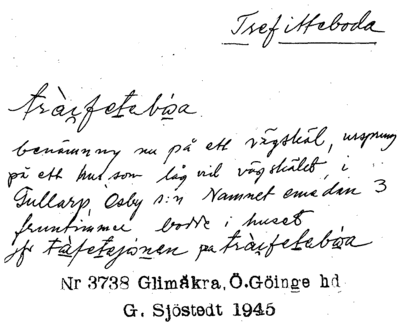 Trefitteboda
träfetabóa.
benämning nu på ett vägskäl, ursprung
på ett hus som låg vid vägskälet, i
Gullarp, Osby s:n Namnet emedan 3
fruntimmer bodde i huset
jfr på
Nr 3738 Glimåkra, Ö.Göinge hd
G. Sjöstedt 1945